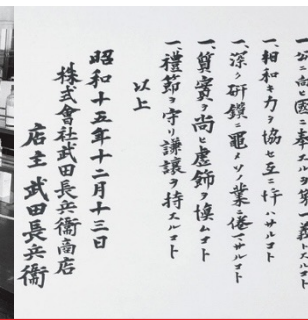 一、公ニ向ヒ國ニ奉スルヲ第一義トスルコト
一、相和キ力ヲ協セ互ニ忤ハサルコト
一、深ク研鑽ニ黽メソノ業ニ倦マサルコト
一、質實ヲ尚ヒ虚飾ヲ慎ムコト
一、禮節ヲ守リ謙讓ヲ持スルコト
以上
昭和十五年十二月十三日
株式會社武田長兵衞商店
店主 武田長兵衞